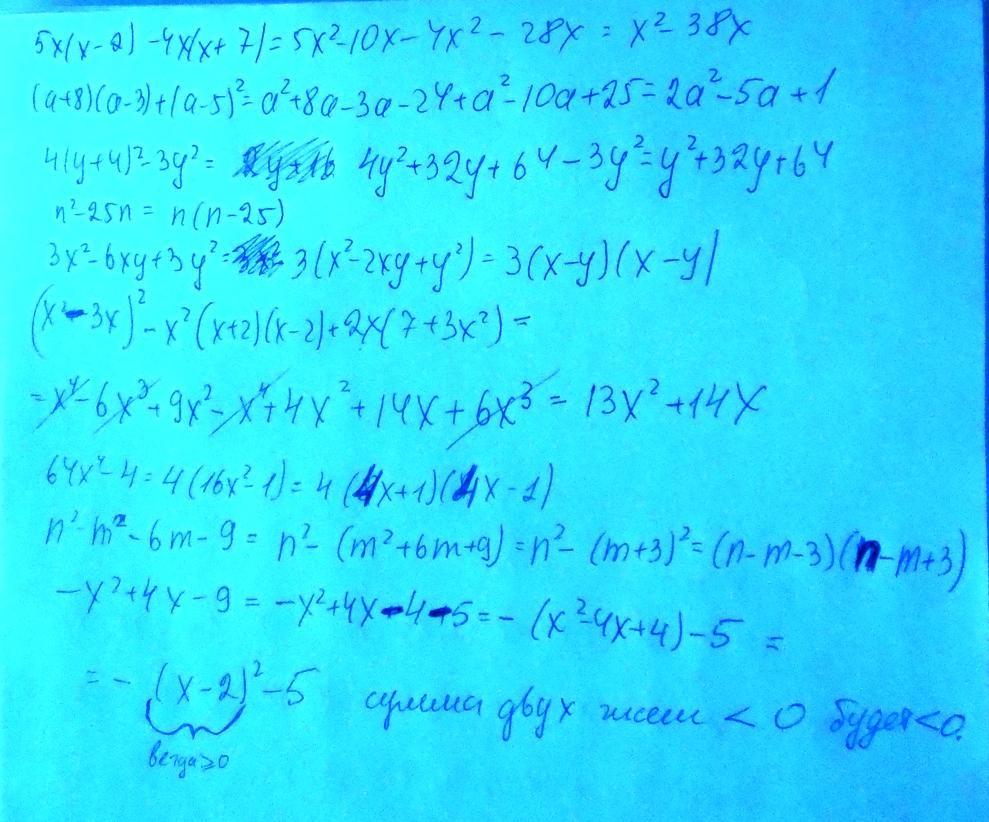 5x(x-2)-4x(x+7)=5x²-10x-4x²-28x=x²-38x
(a+8)(a-3)+(a-5)²=a²+8a-3a-24+a²-10a+25=2a²-5a+1
4(y+4)²-3y²= 4y²+32y+64-3y²=y²+32y+64
n²-25n=n(n-25)
3x²-6xy+3y²= 3(x²-2xy+y²)=3(x-y)(x-y)
(x²-3x)²-x²(x+2)(x-2)+2x(7+3x²)=
=x⁴-6x³+9x²-x⁴+4x²+14x+6x³=13x²+14x
64x²-4=4(16x²-1)=4(4x+1)(4x-1)
n²-m²-6m-9=n²-(m²+6m+9)=n²-(m+3)²=(n-m-3)(n-m+3)
-x²+4x-9=-x²+4x-4-5=-(x²-4x+4)-5=
=-(x-2)²-5 сумма двух чисел <0 будет <0.
всегда ≥0